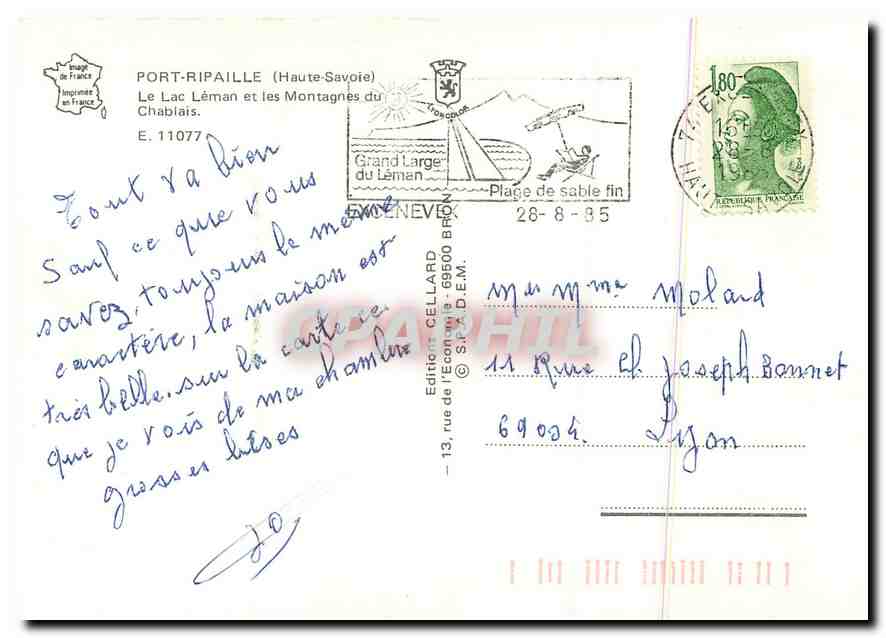 Image
de France
Imprimée
en France
PORT-RIPAILLE (Haute-Savoie)
Le Lac Léman et les Montagnes du
Chablais.
E. 11077
LYONCOLOR
Grand Large
du Léman
Plage de sable fin
EXCENEVEX
28-8-85
1,80
REPUBLIQUE FRANCAISE
Tout va bien
Sauf ce que vous
savez, toujours le même
caractère, la maison est
très belle. sur la carte ce
que je vois de ma chambre
grosses bises
Jo
Editions CELLARD
— 13, rue de l'Economie - 69500 BRON
© S.P.A.D.E.M.
CPAPHIL
Mr Mme Molard
11 Rue Ch Joseph Bonnet
69004. Lyon